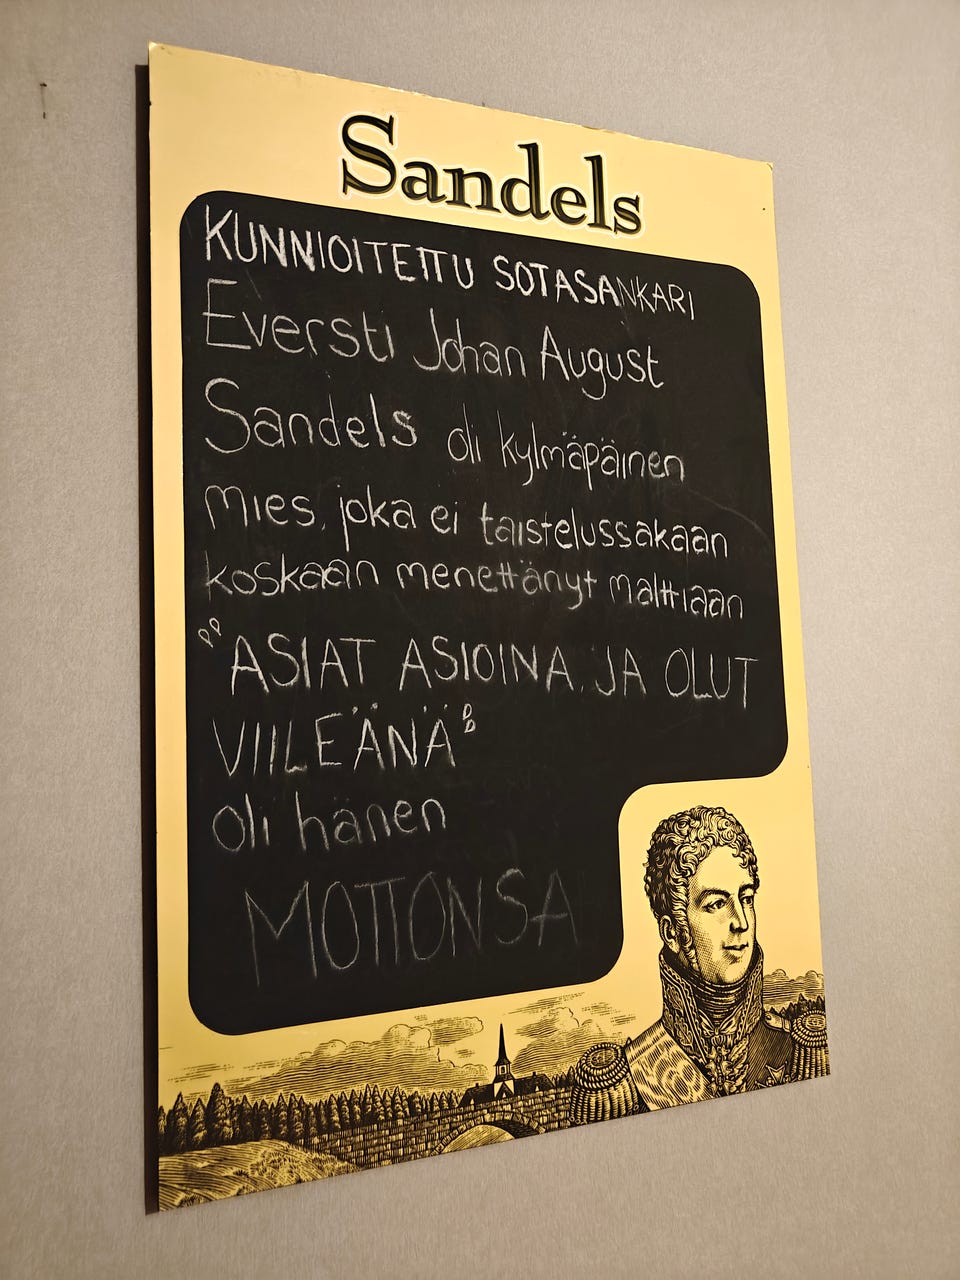 Sandels
KUNNIOITETTU SOTASANKARI
Eversti Johan August
Sandels oli kylmäpäinen
mies, joka ei taistelussakaan
koskaan menettänyt malttiaan
"ASIAT ASIOINA JA OLUT
VIILEÄNÄ"
oli hänen
MOTTONSA